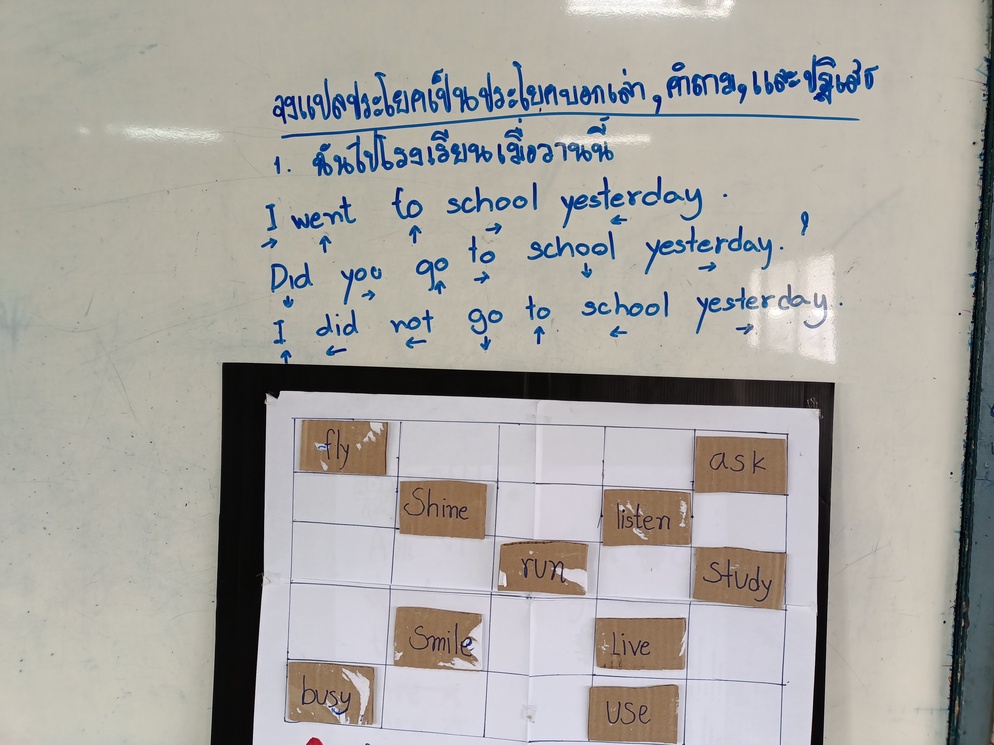 จงแปลประโยคเป็นประโยคบอกเล่า, คำถาม, และปฏิเสธ
1. ฉันไปโรงเรียนเมื่อวานนี้
I went to school yesterday.
→ ↑ ↑ → ←
Did you go to school yesterday.
↓ → ↑ → ↓ →
I did not go to school yesterday.
↑ ← ← ↓ ↑ ← →
fly ask
Shine listen
run Study
Smile Live
busy use